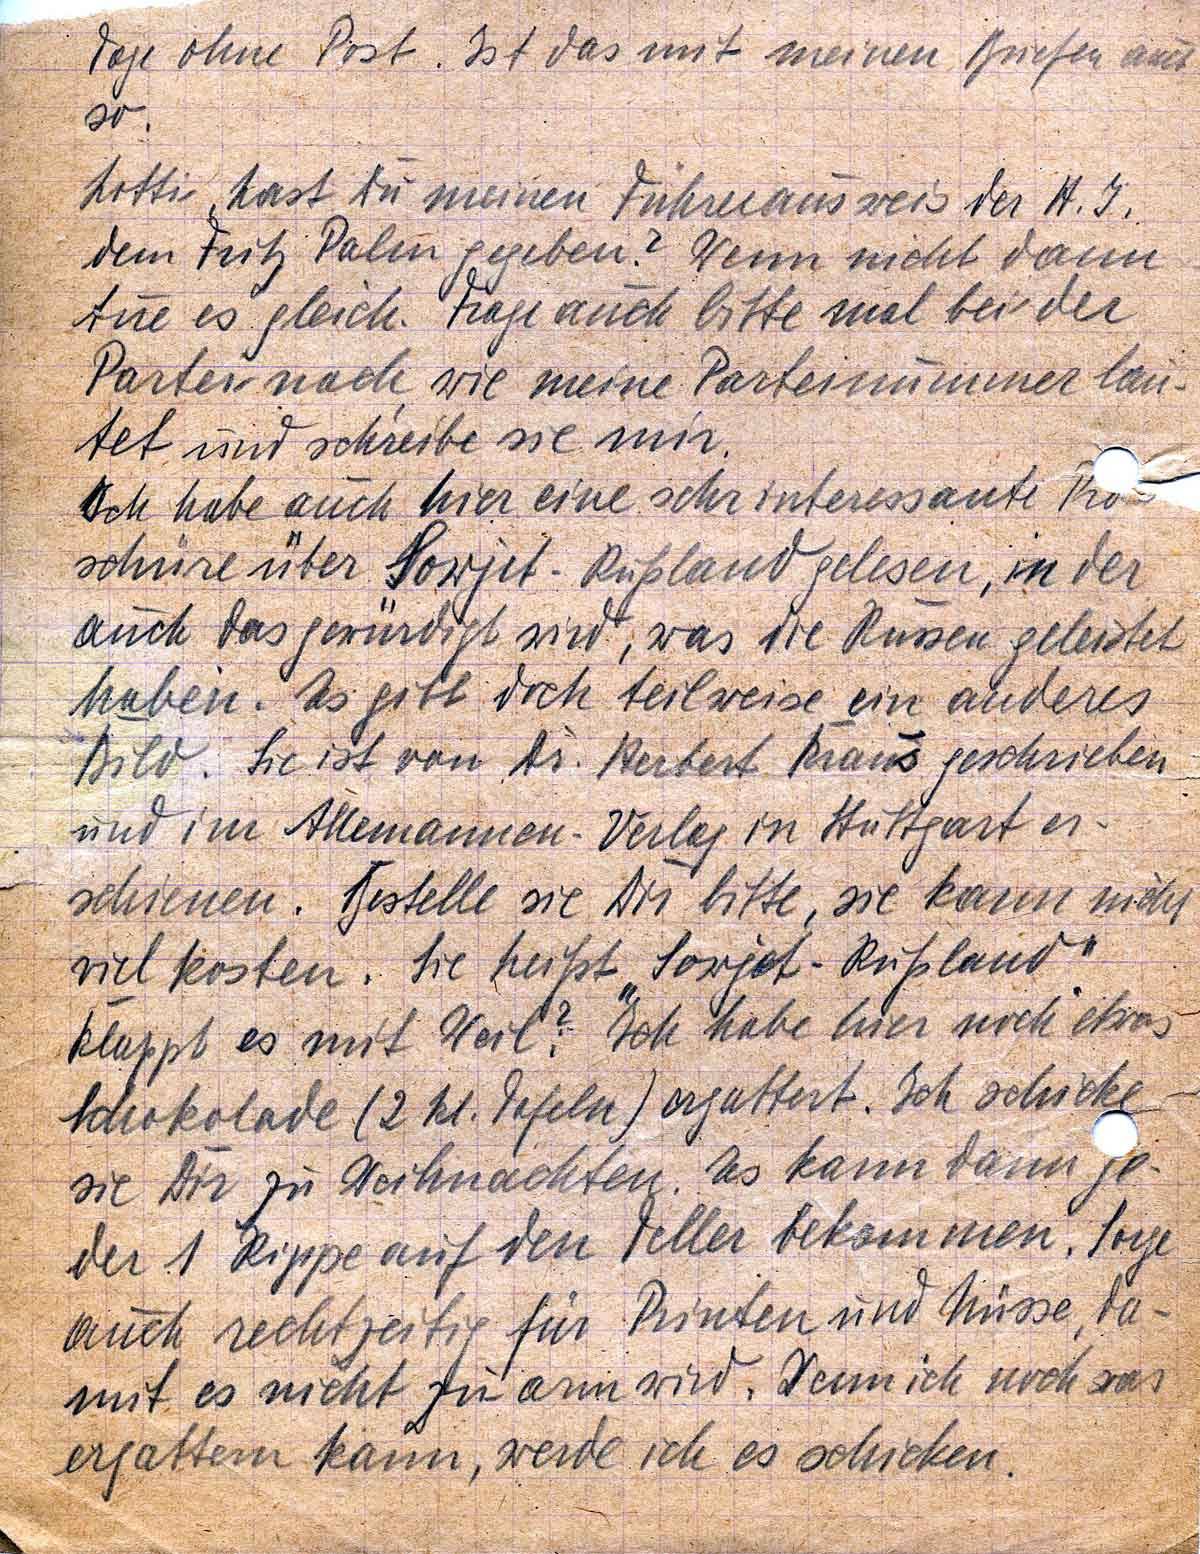 Tage ohne Post. Ist das mit meinen Briefen auch
so.
Lotti, hast Du meinen Führerausweis der H.J.
dem Fritz Palm gegeben? Wenn nicht dann
tue es gleich. Frage auch bitte mal bei der
Partei nach, wie meine Parteinummer lau-
tet und schreibe sie mir.
Ich habe auch hier eine sehr interessante Bro-
schüre über Sowjet-Rußland gelesen, in der
auch das gewürdigt wird, was die Russen geleistet
haben. Es gibt doch teilweise ein anderes
Bild. Sie ist von Dr. Herbert Kraus geschrieben
und im Allemannen-Verlag in Stuttgart er-
schienen. Bestelle sie Dir bitte, sie kann nicht
viel kosten. Sie heißt „Sowjet-Rußland"
Klappt es mit Weil? Ich habe hier noch etwas
Schokolade (2 kl. Tafeln) ergattert. Ich schicke
sie Dir zu Weihnachten. Es kann dann je-
der 1 Rippe auf den Teller bekommen. Sorge
auch rechtzeitig für Printen und Nüsse, da-
mit es nicht zu arm wird. Wenn ich noch was
ergattern kann, werde ich es schicken.